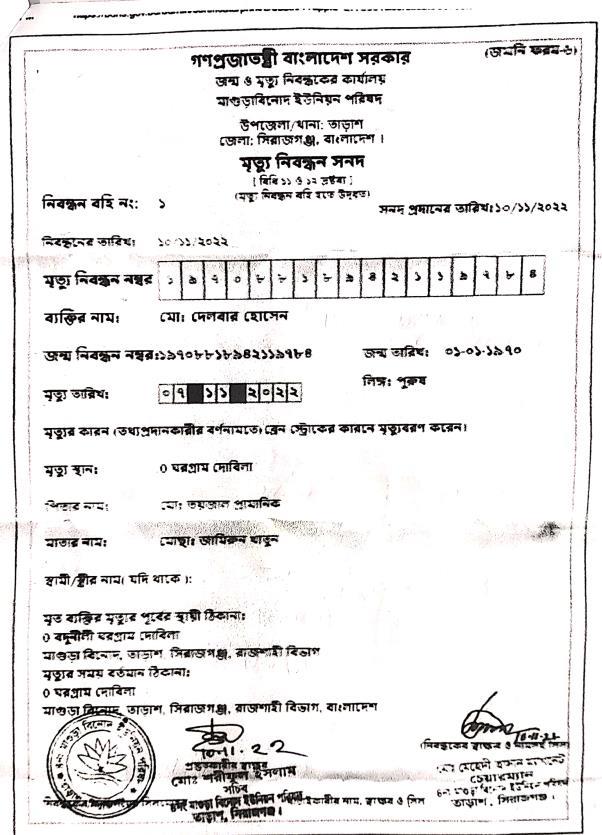 (জমনি ফরম-৬)
গণপ্রজাতন্ত্রী বাংলাদেশ সরকার
জন্ম ও মৃত্যু নিবন্ধকের কার্যালয়
মাগুড়াবিনোদ ইউনিয়ন পরিষদ
উপজেলা/থানা: তাড়াশ
জেলা: সিরাজগঞ্জ, বাংলাদেশ ।
মৃত্যু নিবন্ধন সনদ
[ বিধি ১১ ও ১২ দ্রষ্টব্য ]
(মৃত্যু নিবন্ধন বহি হতে উদ্বৃত)
নিবন্ধন বহি নং: ১ সনদ প্রদানের তারিখ:১০/১১/২০২২
নিবন্ধনের তারিখ: ১০/১১/২০২২
মৃত্যু নিবন্ধন নম্বর ১ ৯ ৭ ০ ৮ ৮ ১ ৮ ৯ ৪ ২ ১ ১ ৯ ৭ ৮ ৪
ব্যক্তির নাম: মো: দেলবার হোসেন
জন্ম নিবন্ধন নম্বর:১৯৭০৮৮১৮৯৪২১১৯৭৮৪ জন্ম তারিখ: ০১-০১-১৯৭০
মৃত্যু তারিখ: ০৭ ১১ ২০২২ লিঙ্গ: পুরুষ
মৃত্যুর কারন (তথ্যপ্রদানকারীর বর্ণনামতে) ব্রেন স্ট্রোকের কারনে মৃত্যুবরণ করেন।
মৃত্যু স্থান: 0 ঘরগ্রাম দোবিলা
পিতার নাম: মো: তয়জাল প্রামানিক
মাতার নাম: মোছা: জামিরুন খাতুন
স্বামী/স্ত্রীর নাম( যদি থাকে ):
মৃত ব্যক্তির মৃত্যুর পূর্বের স্থায়ী ঠিকানা:
0 ঘরগ্রাম দোবিলা
মাগুড়া বিনোদ, তাড়াশ, সিরাজগঞ্জ, রাজশাহী বিভাগ
মৃত্যুর সময় বর্তমান ঠিকানা:
0 ঘরগ্রাম দোবিলা
মাগুড়া বিনোদ, তাড়াশ, সিরাজগঞ্জ, রাজশাহী বিভাগ, বাংলাদেশ
10-11-22
মোঃ শরীফুল ইসলাম
সচিব
মাগুড়া বিনোদ ইউনিয়ন পরিষদ
তাড়াশ, সিরাজগঞ্জ ।
10-11-22
মোঃ মেহেদী হাসান
চেয়ারম্যান
তাড়াশ, সিরাজগঞ্জ ।
নাম, স্বাক্ষর ও সিল